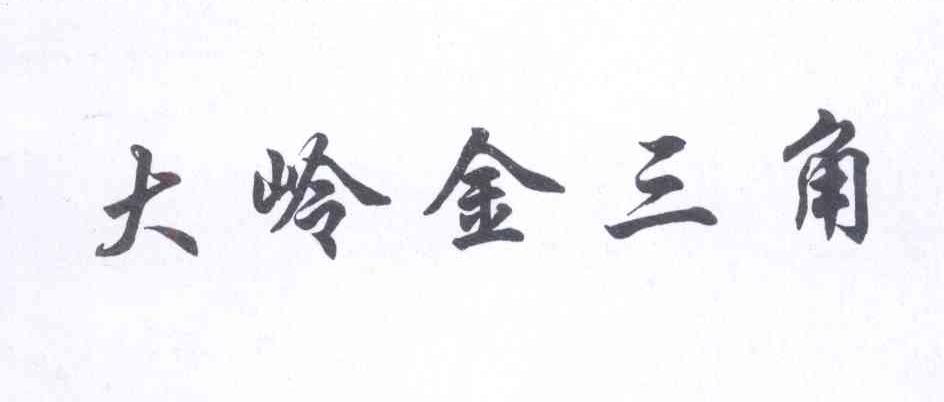 大岭金三角